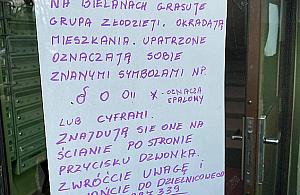 NA BIELANACH GRASUJE
GRUPA ZŁODZIEI. OKRADAJĄ
MIESZKANIA. UPATRZONE
OZNACZAJĄ SOBIE
ZNANYMI SYMBOLAMI NP.
X - OZNACZA
SPALONY
LUB CYFRAMI.
ZNAJDUJĄ SIĘ ONE NA
ŚCIANIE PO STRONIE
PRZYCISKU DZWONKA.
ZWRÓĆCIE UWAGĘ I
DO DZIELNICOWEGO
339